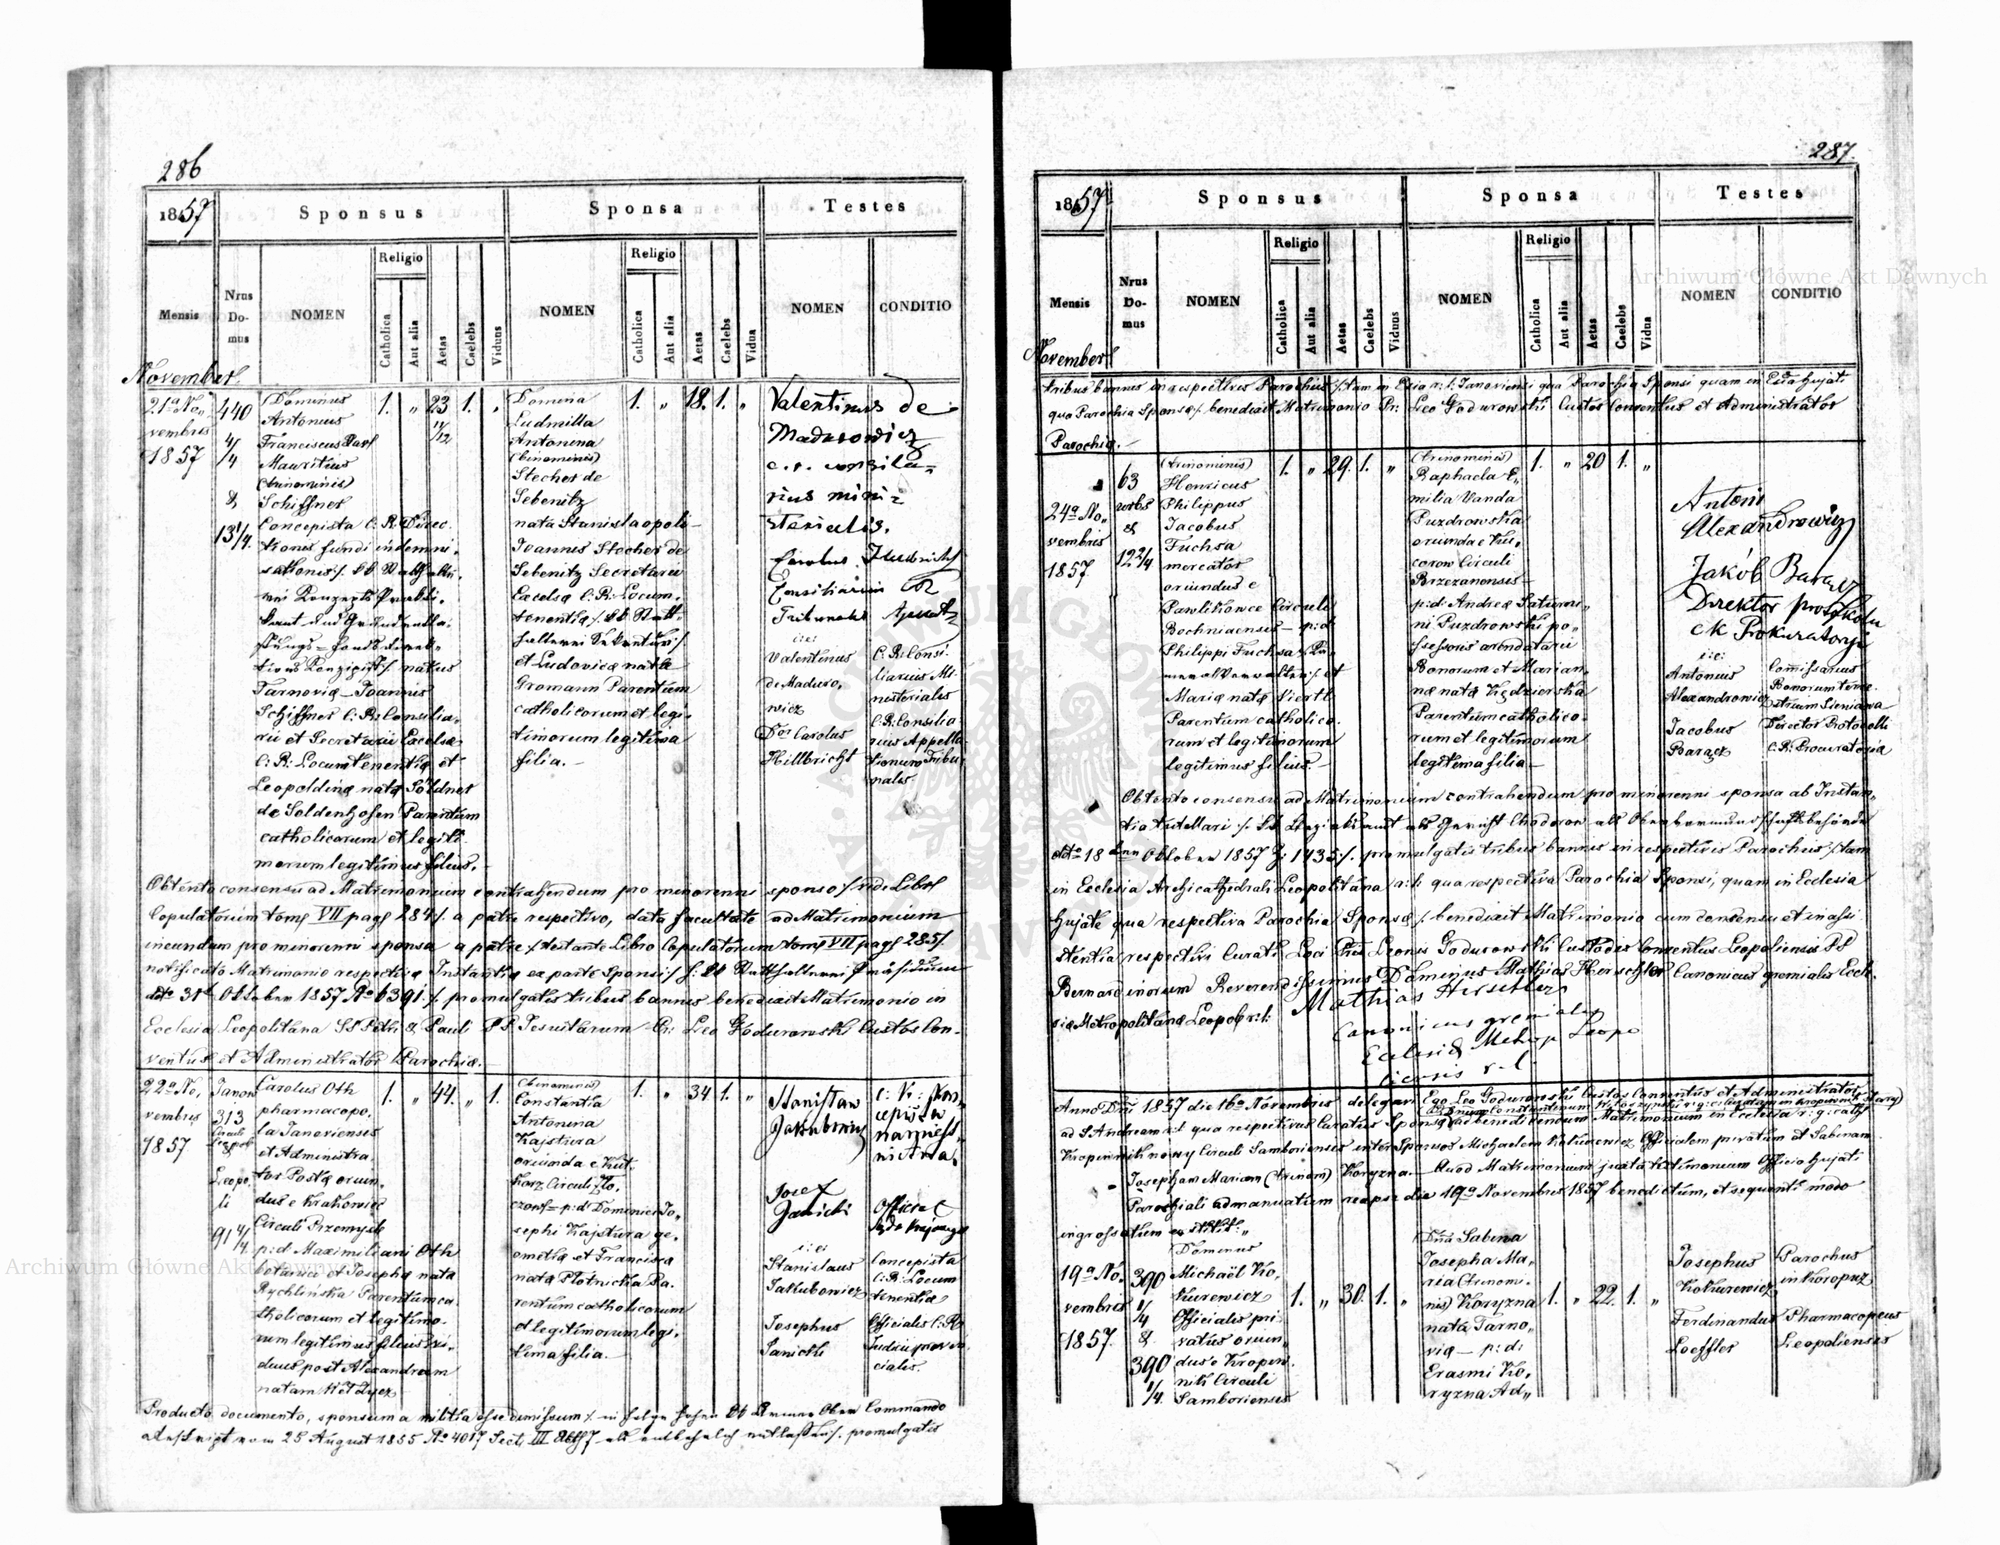 286
1857
Sponsus
Sponsa
Testes
Mensis
Nrus Do-mus
NOMEN
Religio
Catholica
Aut alia
Aetas
Caelebs
Viduus
NOMEN
Religio
Catholica
Aut alia
Aetas
Caelebs
Vidua
NOMEN
CONDITIO
November
21a No„
vembris
1857
440
4/4
&
13 1/4
Dominus
Antonius
Franciscus
Mauritius
Schiffner
Concepista C. R. Direc.
tionis fundi indemni.
natus
Tarnoviæ – Joannis
Schiffner C: R: Consilia.
rii et Secretarii Excelsæ
C: R: Locumtenentiæ et
Leopoldinæ natæ Söldner
de Soldenhofen Parentum
catholicorum et legiti.
morum legitimus filius. –
1. „ 23 11/12 1. „
Domina
Ludmilla
Antonina
(binominis)
Stecher de
Sebenitz
nata Stanislaopoli –
Joannis Stecher de
Sebenitz Secretarii
Excelsæ C: R: Locum.
tenentiæ
et Ludovicæ natæ
Gromann Parentum
catholicorum et legi.
timorum legitima
filia. –
1. „ 18. 1. „
Valentinus de
Madurowicz
c. r. consilia=
rius mini=
sterialis.
Carolus
Consiliarius CR
i: e:
Valentinus
de Maduro,
wicz
Dor Carolus
Hillbricht
C: R: Consi.
liarius Mi.
nisterialis
C: R: Consilia
rius Appella
tionum Tribu
nalis
Obtento consensu ad Matrimonium contrahendum pro minorenni sponso /: vide Libr:
Copulatorum tomo VII pagæ 284 :/ a patre respectivo, data facultate ad Matrimonium
ineundum pro minorenni sponsa a patre /: testante Libro Copulatorum tomo VII pagæ 285 :/
notificato Matrimonio respectivæ Instantiæ ex parte Sponsi
ddto 31t Oktober 1857 No 6391 :/ promulgatis tribus bannis benedixit Matrimonio in
Ecclesia Leopolitana SS Petri & Pauli PP Jesuitarum Pr: Leo Godurowski Custos Con–
ventus et Administrator Parochiæ. –
22a No,
vembris
1857
Janow
313
&
Leopo.
li
91 4/4
Carolus Oth
pharmacopo.
la Janoviensis
et Administra.
tor Postæ oriun.
dus e Krakowiec
Circuli Przemysl:
p: d: Maximiliani Oth
botanici et Josephæ nata
Rychlińska Parentum ca.
tholicorum et legitimo.
rum legitimus filius vi.
duus post Alexandram
natam
1. „ 44. „ 1.
(binominis)
Constantia
Antonina
Kajstura
oriunda e Kut.
korz Circuli Zło.
czow – p: d: Dominici Jo„
sephi Kajstura ge.
ometræ et Franciscæ
natæ Płotnicka Pa.
rentum catholicorum
et legitimorum legi.
tima filia. –
1. „ 34 1. „
Stanisław
Jakubowicz
Josef
Janicki
i: e:
Stanislaus
Jakubowicz
Josephus
Janicki
Concepista
C: R: Locum
tenentiæ
Officialis C: R:
Judicii provin
cialis.
Producto documento, sponsum a militia esse dimissum
vom 25 August 1855 No 4017 Sect: III promulgatis
287.
1857
Sponsus
Sponsa
Testes
Mensis
Nrus Do-mus
NOMEN
Religio
Catholica
Aut alia
Aetas
Caelebs
Viduus
NOMEN
Religio
Catholica
Aut alia
Aetas
Caelebs
Vidua
NOMEN
CONDITIO
November
tribus bannis in respectivis Parochiis /: tam in Ecclia r: l: Janoviensi qua Parochia Sponsi quam in Eccla hujati
qua Parochia Sponsæ :/ benedixit Matrimonio Pr: Leo Godurowski Custos Conventus et Administrator
Parochiæ. –
24a No„
vembris
1857.
63
urbs
&
122/4
(trinominis)
Henricus
Philippus
Jacobus
Fuchsa
mercator
oriundus e
Pawlikowce Circuli
Bochniaensis – p: d:
Philippi Fuchsa
et
Mariæ natæ Viertl
Parentum catholico.
rum et legitimorum
legitimus filius. –
1. „ 29. 1. „
(trinominis)
Raphaela E„
milia Vanda
Puzdrowska
oriunda e
Circuli
Brzezanensis –
p: d: Andreæ Saturni„
ni Puzdrowski po„
ssessoris arendatarii
Bonorum et Marian„
næ natæ Kędzierska
Parentum catholico.
rum et legitimorum
legitima filia –
1. „ 20 1. „
Antoni
Alexandrowicz
Jakób Barącz
Direktor protokołu
ck Prokuratoryi
i: e:
Antonius
Alexandrowicz
Jacobus
Barącz
Comissarius
Bonorum
Sieniawa
Director Protocolli
C: R: Procuratoria
Obtento consensu ad Matrimonium contrahendum pro minorenni sponsa ab Instan„
tia tutellari
ddto 18 Oktober 1857 Z: 1435 :/. promulgatis tribus bannis in respectivis Parochiis /: tam
in Ecclesia Archicathedrali Leopolitana r: l: qua respectiva Parochia Sponsi, quam in Ecclesia
hujate qua respectiva Parochia Sponsæ :/ benedixit Matrimonio cum consensu et in assi
stentia respectivi Curati Loci Pris Leonis Godurowski Custodis Conventus Leopoliensis PP
Bernardinorum Reverendissimus Dominus Mathias Hirschler Canonicus gremialis Eccle.
siæ Metropolitanæ Leopol: r: l:
Mathias Hirschler
Canonicus gremialis
Ecclesiæ Metrop Leopo
liensis r. l.
Anno Dni 1857 die 16a Novembris delegavi Ego Leo Godurowski Custos Conventus et Administrator
ad S Andream r: l: qua respectivus Curatus Sponsæ ad benedicendum Matrimonium in Ecclesia r: g: cath:
Kropivnik nowy Circuli Samboriensis inter Sponsos Michaelem Kokurewicz Officialem privatum et Sabinam
Josepham Mariam (trinom) Koryzna. – Quod Matrimonium juxta testimonium Officio hujati
Parochiali admanuatum reapse die 19a Novembris 1857 benedictum, et sequenti modo
ingrossatum
19a No.
vembris
1857.
390
1/4
&
390
1/4
Dominus
Michaël Ko,
kurewicz
Officialis pri„
vatus oriun„
dus e Kropiw.
nik Circuli
Samboriensis
1. „ 30. 1. „
Dna Sabina
Josepha Ma„
ria (trinomi.
nis) Koryzna
nata Tarno„
viæ – p: d:
Erasmi Ko,
ryzna Ad„
1. „ 22. 1. „
Josephus
Kokurewicz
Ferdinandus
Loeffler
Parochus
in Koropuz
Pharmacopœus
Leopoliensis
Archiwum Główne Akt Dawnych
Archiwum Główne Akt Dawnych